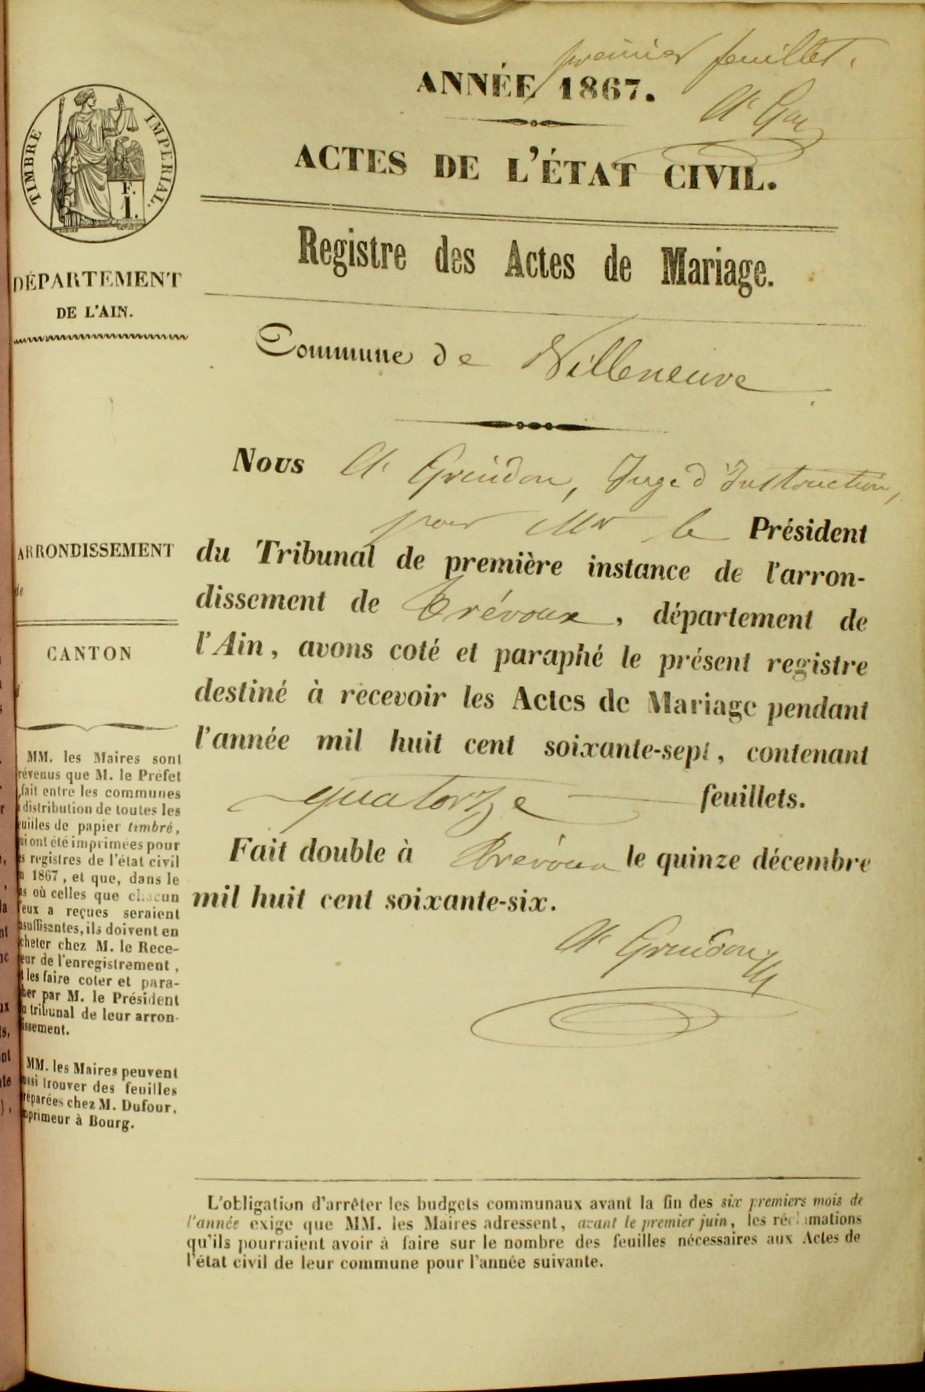 premier feuillet.
ANNÉE 1867.
ACTES DE L'ÉTAT CIVIL.
TIMBRE IMPERIAL.
F.
1.
Registre des Actes de Mariage.
DÉPARTEMENT
DE L'AIN.
Commune de Villeneuve
Nous Ch Grindon, Juge d'Instruction,
pour Mr le Président
du Tribunal de première instance de l'arron-
dissement de Trévoux, département de
l'Ain, avons coté et paraphé le présent registre
destiné à recevoir les Actes de Mariage pendant
l'année mil huit cent soixante-sept, contenant
quatorze feuillets.
Fait double à Trévoux le quinze décembre
mil huit cent soixante-six.
Grindon
ARRONDISSEMENT
de
CANTON
MM. les Maires sont
révenus que M. le Préfet
fait entre les communes
distribution de toutes les
uilles de papier timbré,
i ont été imprimées pour
s registres de l'état civil
1867, et que, dans le
s où celles que chacun
eux a reçues seraient
suffisantes, ils doivent en
cheter chez M. le Rece-
eur de l'enregistrement,
les faire coter et para-
her par M. le Président
u tribunal de leur arron-
issement.
MM. les Maires peuvent
ssi trouver des feuilles
réparées chez M. Dufour,
mprimeur à Bourg.
L'obligation d'arrêter les budgets communaux avant la fin des six premiers mois de
l'année exige que MM. les Maires adressent, avant le premier juin, les réclamations
qu'ils pourraient avoir à faire sur le nombre des feuilles nécessaires aux Actes de
l'état civil de leur commune pour l'année suivante.